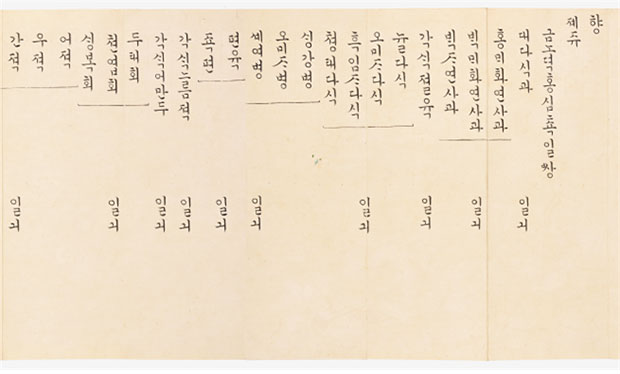 향
졔쥬
홍심쵹일쌍
대다식과 일긔
홍미화연사과
빅미화연사과 일긔
빅ᄌᆞ연사과
각식졀육 일긔
뉼다식
오미ᄌᆞ다식
흑임ᄌᆞ다식 일긔
쳥태다식
싱강병
오미ᄌᆞ병
일긔
편육
죡편 일긔
각식느름젹 일긔
각식어만두 일긔
두태회
쳔엽회 일긔
싱복회
어젹
우젹
간젹 일긔